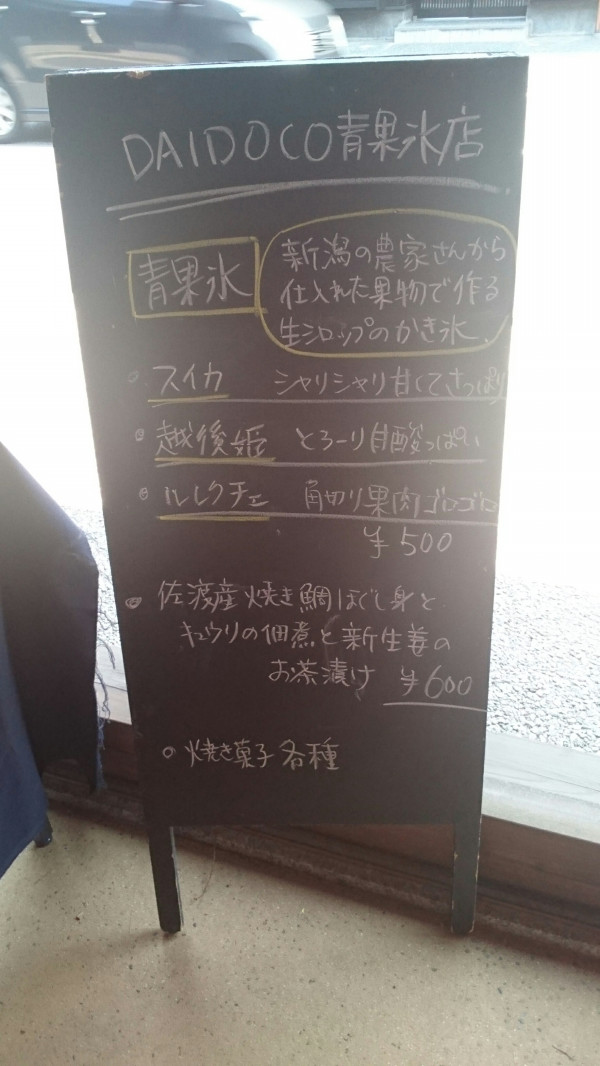 DAIDOCO青果氷店
青果氷
新潟の農家さんから
仕入れた果物で作る
生シロップのかき氷、
スイカ シャリシャリ甘くてさっぱり
越後姫 とろーり甘酸っぱい
ルレクチェ 角切り果肉ゴロゴロ
¥500
佐渡産焼き鯛ほぐし身と
キュウリの佃煮と新生姜の
お茶漬け ¥600
焼き菓子各種